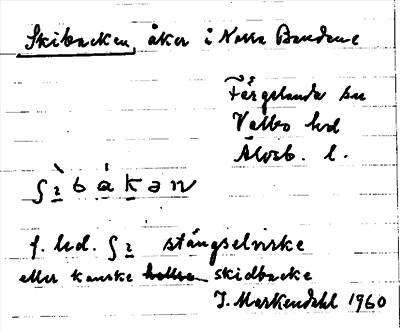 Skibacken, åker i Norra Bondane
Färgelanda sn
Valbo hd
Älvsb. l.
f. led. stängselvirke
eller kanske skidbacke
J. Markendahl 1960